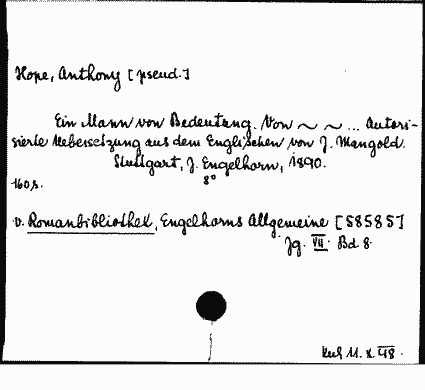 Hope, Anthony [pseud.]
Ein Mann von Bedeutung. Von ~ ~ ... Autori-
sierte Uebersetzung aus dem Englischen von J. Mangold.
Stuttgart, J. Engelhorn, 1890.
8°
160 s.
v. Romanbibliothek, Engelhorns Allgemeine [S8585]
Jg. VII. Bd 8.
11. X. 48.